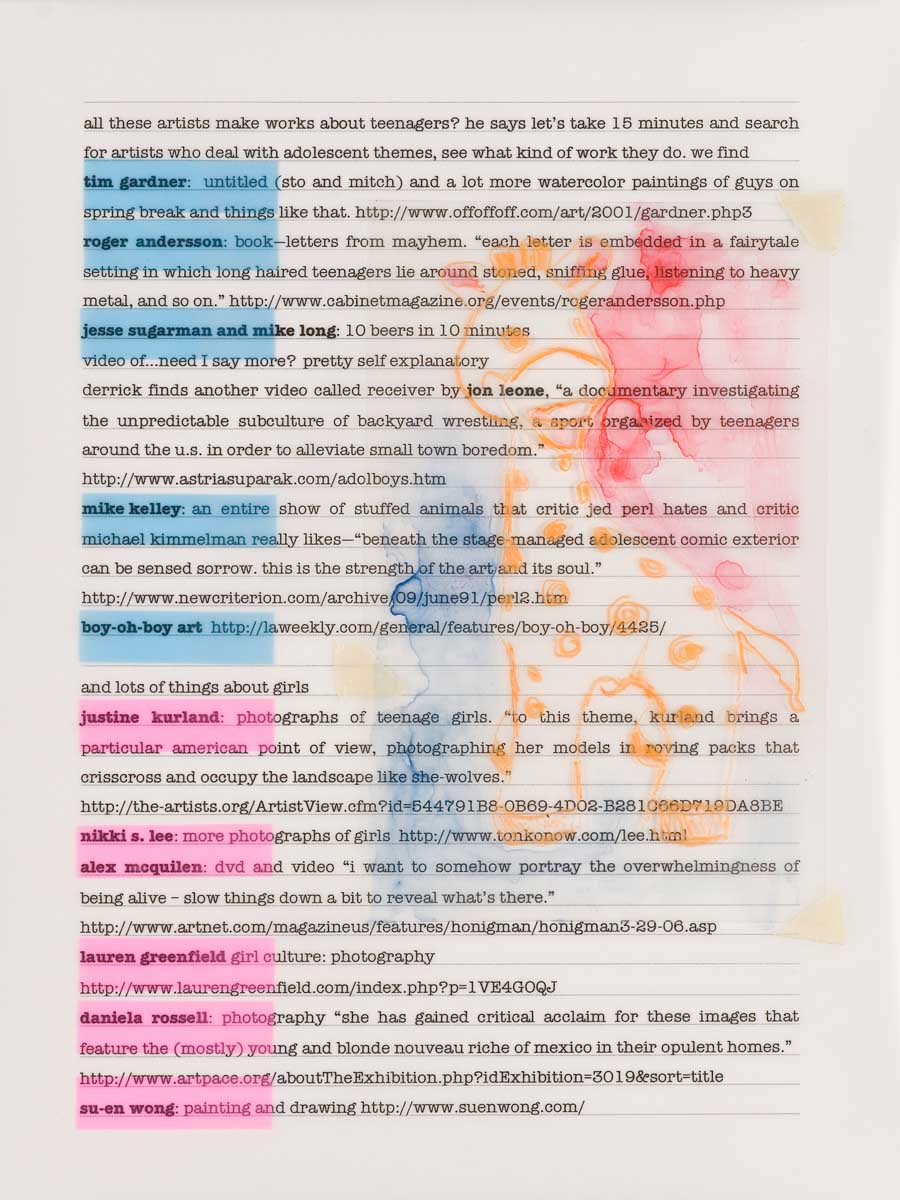 all these artists make works about teenagers? he says let's take 15 minutes and search
for artists who deal with adolescent themes, see what kind of work they do. we find
tim gardner: untitled (sto and mitch) and a lot more watercolor paintings of guys on
spring break and things like that. http://www.offoffoff.com/art/2001/gardner.php3
roger andersson: book—letters from mayhem. “each letter is embedded in a fairytale
setting in which long haired teenagers lie around stoned, sniffing glue, listening to heavy
metal, and so on.” http://www.cabinetmagazine.org/events/rogerandersson.php
jesse sugarman and mike long: 10 beers in 10 minutes
video of...need I say more? pretty self explanatory
derrick finds another video called receiver by jon leone, “a documentary investigating
the unpredictable subculture of backyard wrestling, a sport organized by teenagers
around the u.s. in order to alleviate small town boredom.”
http://www.astriasuparak.com/adolboys.htm
mike kelley: an entire show of stuffed animals that critic jed perl hates and critic
michael kimmelman really likes—“beneath the stage-managed adolescent comic exterior
can be sensed sorrow. this is the strength of the art and its soul.”
http://www.newcriterion.com/archive/09/june91/perl2.htm
boy-oh-boy art http://laweekly.com/general/features/boy-oh-boy/4425/
and lots of things about girls
justine kurland: photographs of teenage girls. “to this theme, kurland brings a
particular american point of view, photographing her models in roving packs that
crisscross and occupy the landscape like she-wolves.”
http://the-artists.org/ArtistView.cfm?id=544791B8-0B69-4D02-B281C66D719DA8BE
nikki s. lee: more photographs of girls http://www.tonkonow.com/lee.html
alex mcquilen: dvd and video “i want to somehow portray the overwhelmingness of
being alive – slow things down a bit to reveal what's there.”
http://www.artnet.com/magazineus/features/honigman/honigman3-29-06.asp
lauren greenfield girl culture: photography
http://www.laurengreenfield.com/index.php?p=1VE4G0QJ
daniela rossell: photography “she has gained critical acclaim for these images that
feature the (mostly) young and blonde nouveau riche of mexico in their opulent homes.”
http://www.artpace.org/aboutTheExhibition.php?idExhibition=3019&sort=title
su-en wong: painting and drawing http://www.suenwong.com/